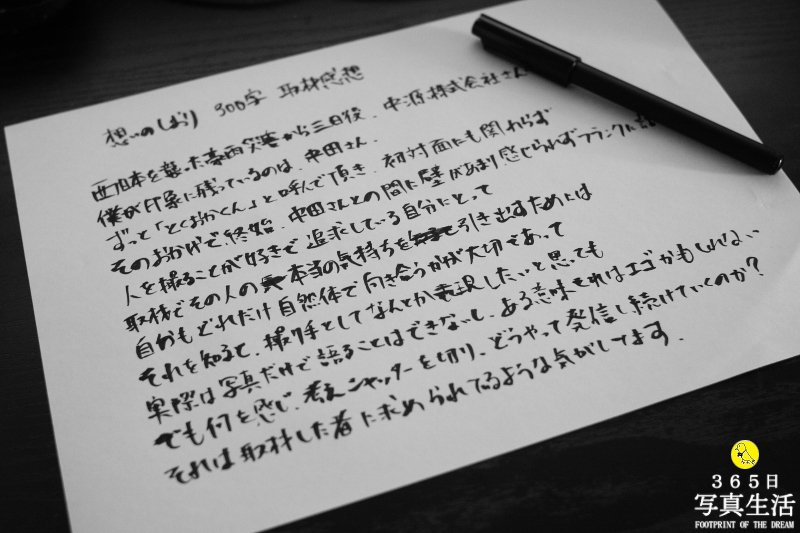 想いのしおり 300字 取材感想
西日本を襲った豪雨災害から三日後、中源株式会社さん
僕が印象に残っているのは、中田さん、
ずっと「とくおかくん」と呼んで頂き、初対面にも関わらず
そのおかげで終始、中田さんとの間に壁があまり感じられずフランクに話
人を撮ることが好きで追求している自分にとって
取材でその人の本当の気持ちを引き出すためには
自分もどれだけ自然体で向き合うかが大切であって
それを知ると、撮り手としてなんとか表現したいと思っても
実際は写真だけで語ることはできないし、ある意味それはエゴかもしれない
でも何を感じ、考えシャッターを切り、どうやって発信し続けていくのか?
それは取材した者に求められてるような気がしてます.
365日
写真生活
FOOTPRINT OF THE DREAM